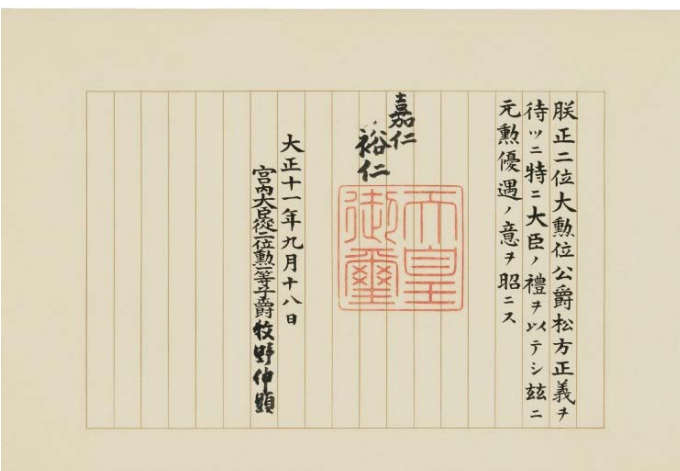 朕正二位大勲位公爵松方正義ヲ
待ツニ特ニ大臣ノ禮ヲ以テシ玆ニ
元勲優遇ノ意ヲ昭ニス
嘉仁
裕仁
天皇
御璽
大正十一年九月十八日
宮內大臣從二位勲一等子爵牧野伸顯